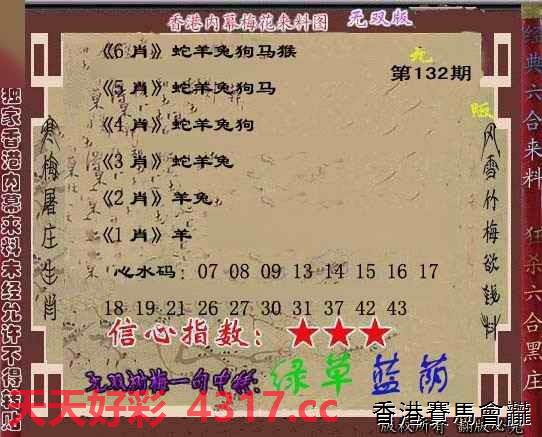 香港内幕梅花来料图 无双版
经典六合来料 狂杀六合黑庄
独家香港内幕来料未经允许不得转贴
寒梅屠庄生肖
风雪竹梅欲钱料
无
版
第132期
《6 肖》蛇羊兔狗马猴
《5 肖》蛇羊兔狗马
《4 肖》蛇羊兔狗
《3 肖》蛇羊兔
《2 肖》羊兔
《1 肖》羊
心水码：07 08 09 13 14 15 16 17
18 19 21 26 27 30 31 37 42 43
信心指数：★★★
一句中特：绿草蓝荫
天天好彩 4317.cc
香港賽馬會
版权所有 翻版必究